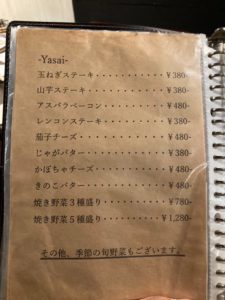 -Yasai-
玉ねぎステーキ・・・・・・・・・・¥380-
山芋ステーキ・・・・・・・・・・・¥380-
アスパラベーコン・・・・・・・・・¥480-
レンコンステーキ・・・・・・・・・¥380-
茄子チーズ・・・・・・・・・・・・¥480-
じゃがバター・・・・・・・・・・・¥380-
かぼちゃチーズ・・・・・・・・・・¥480-
きのこバター・・・・・・・・・・・¥480-
焼き野菜3種盛り・・・・・・・・・¥780-
焼き野菜5種盛り・・・・・・・・¥1,280-
その他、季節の旬野菜もございます。